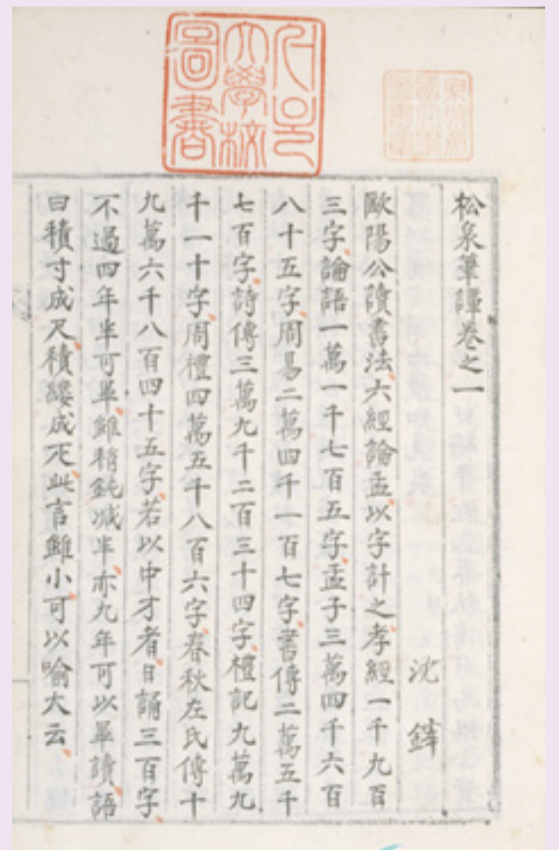 서울
大學校
圖書
松泉筆譚卷之一
沈鋅
歐陽公讀書法六經論孟以字計之孝經一千九百
三字論語一萬一千七百五字孟子三萬四千六百
八十五字周易二萬四千一百七字書傳二萬五千
七百字詩傳三萬九千二百三十四字禮記九萬九
千一十字周禮四萬五千八百六字春秋左氏傳十
九萬六千八百四十五字若以中才者日誦三百字
不過四年半可畢雖稍鈍减半亦九年可以畢讀語
曰積寸成尺積縷成疋此言雖小可以喻大云